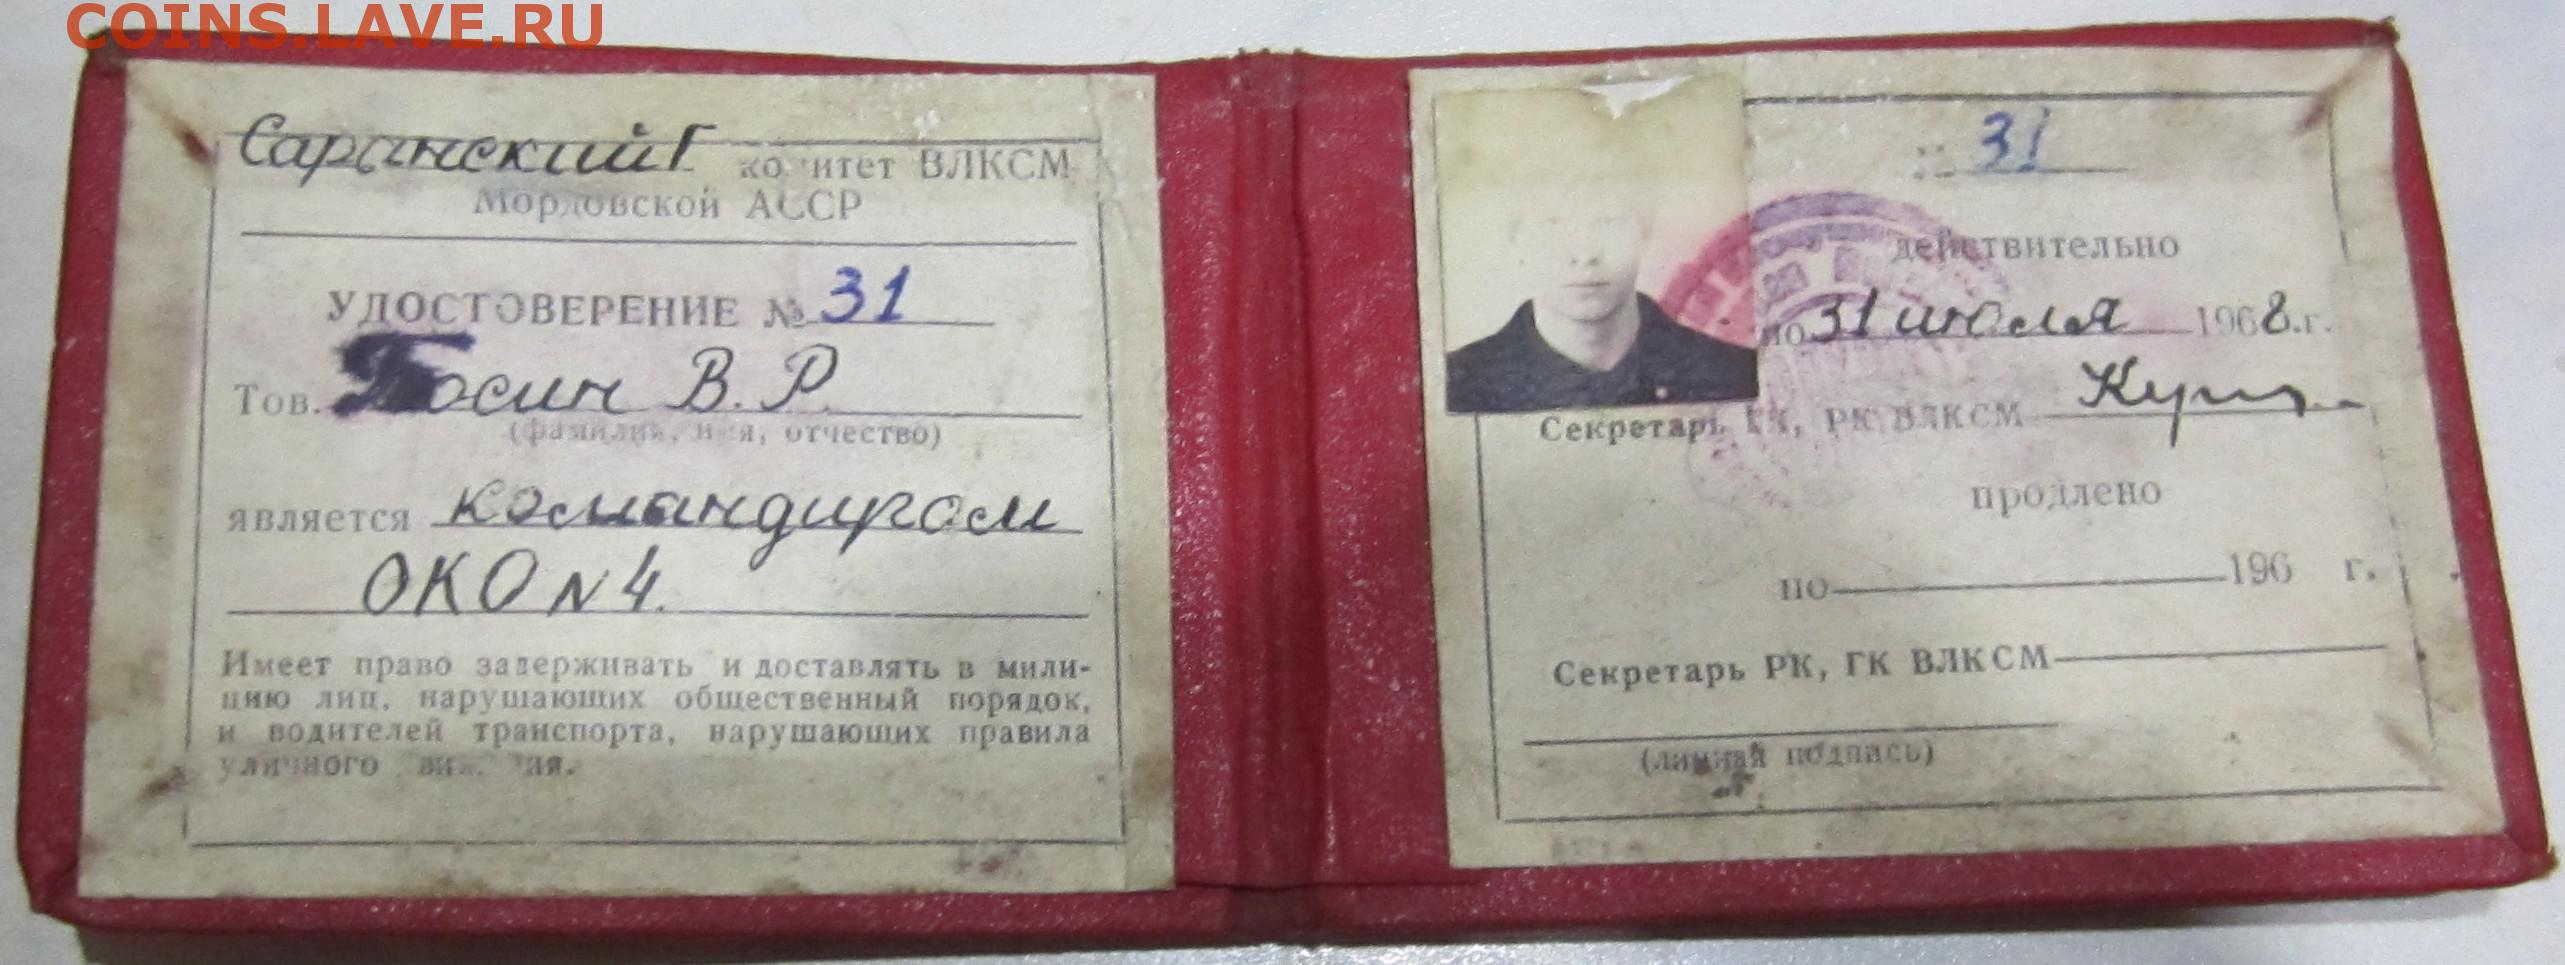 COINS.LAVE.RU
Саранский Г комитет ВЛКСМ
Мордовской АССР
УДОСТОВЕРЕНИЕ № 31
Тов. В. Р.
(фамилия, имя, отчество)
является командиром
ОКО N 4.
Имеет право задерживать и доставлять в мили-
цию лиц, нарушающих общественный порядок,
и водителей транспорта, нарушающих правила
уличного движения.
№ 31
действительно
по 31 июля 1968.г.
Секретарь ГК, РК ВЛКСМ
продлено
по 196 г.
Секретарь РК, ГК ВЛКСМ
(личная подпись)